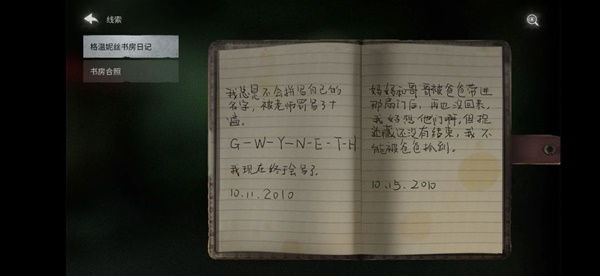 线索
格温妮丝书房日记
书房合照
我总是不会拼写自己的
名字，被老师罚写了十
遍。
G-W-Y-N-E-T-H
我现在终于会写了
10.11.2010
妈妈和哥哥被爸爸带进
那扇门后，再也没回来，
我好想他们啊。但捉
迷藏还没有结束，我不
能被爸爸抓到。
10.15.2010